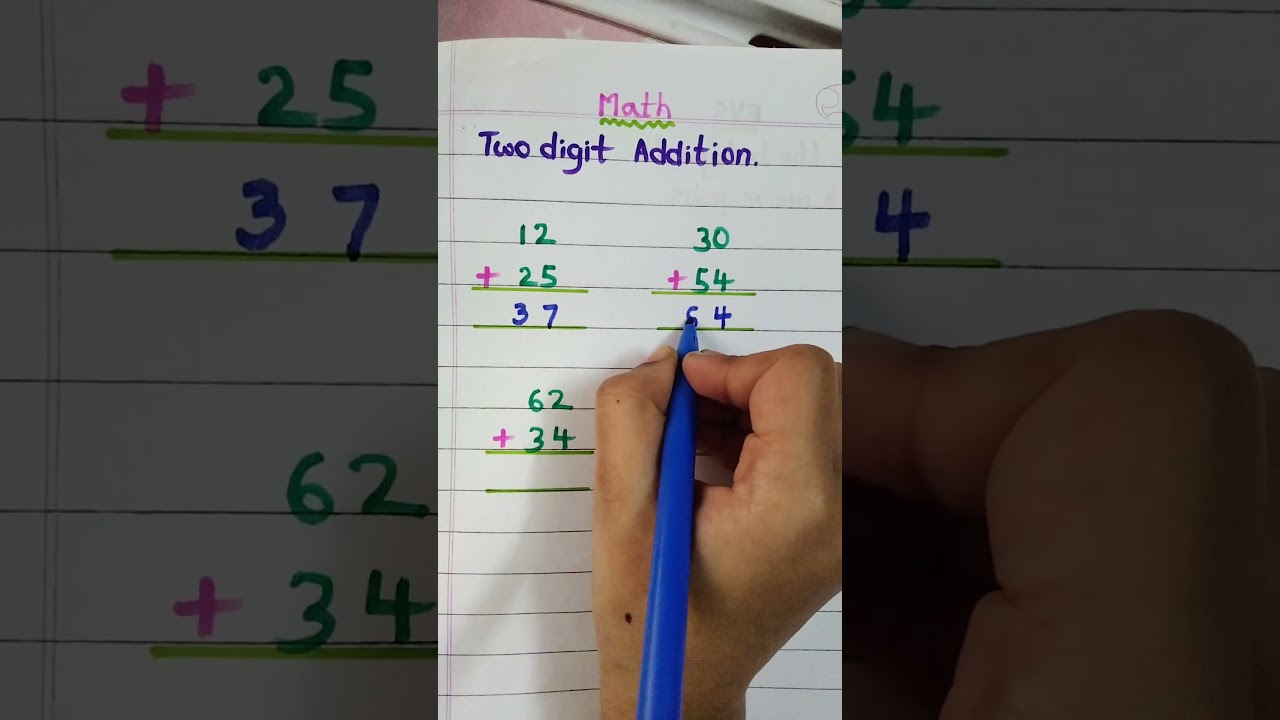 Math
Two digit Addition.
12 30
+ 25 + 54
37 4
62
+ 34